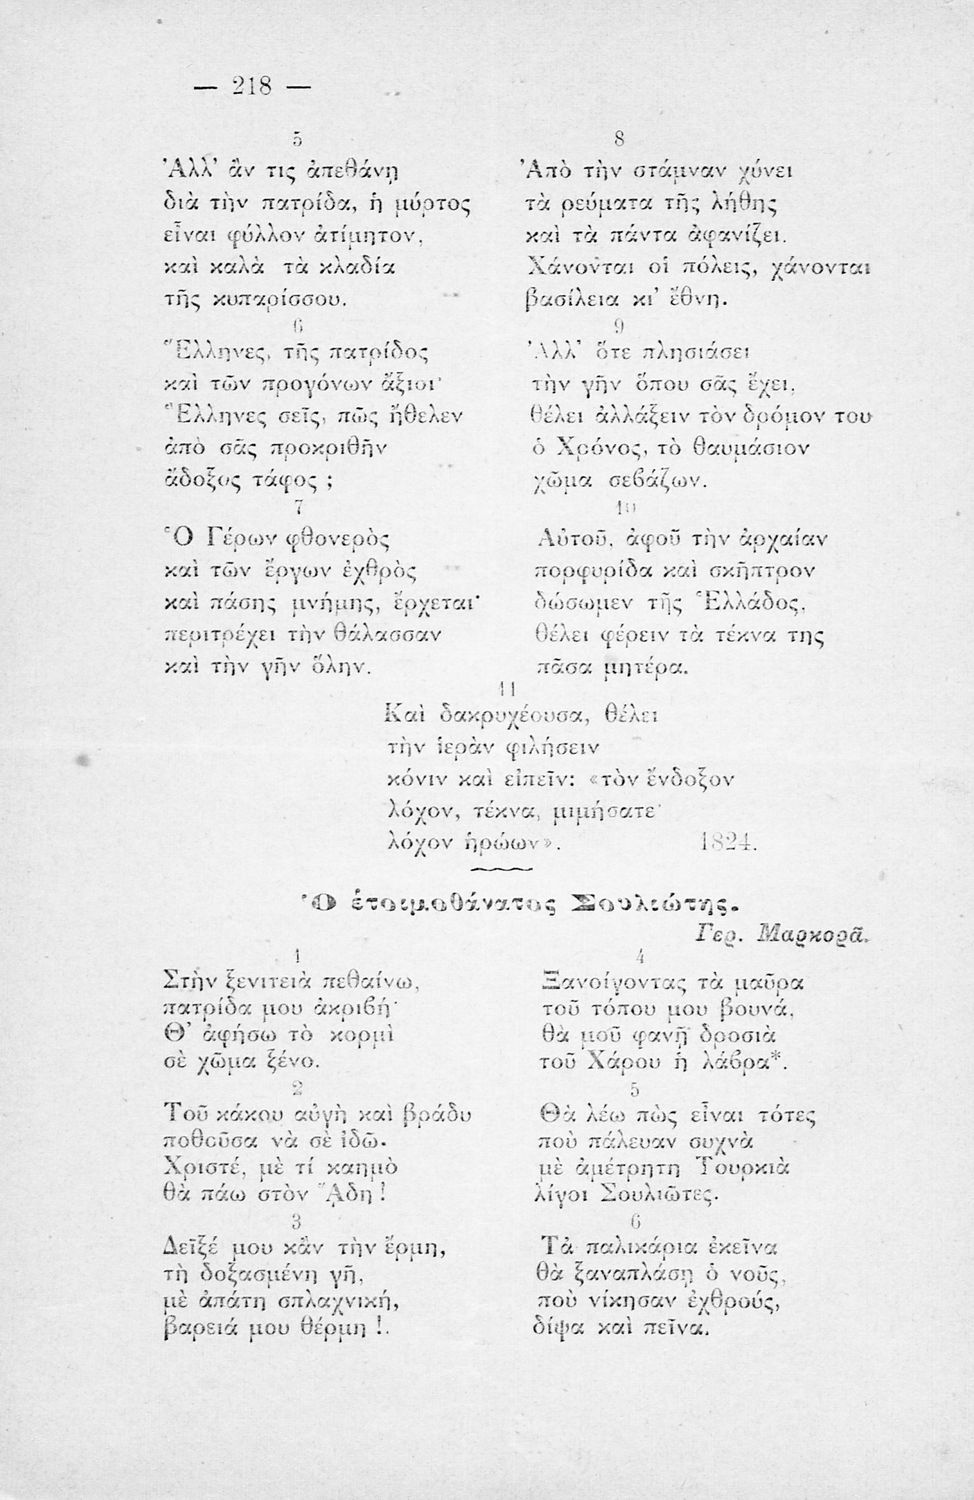 — 218 —
5
Ἀλλ' ἂν τις ἀπεθάνῃ
διὰ τὴν πατρίδα, ἡ μύρτος
εἶναι φύλλον ἀτίμητον,
καὶ καλὰ τὰ κλαδία
τῆς κυπαρίσσου.
6
Ἕλληνες, τῆς πατρίδος
καὶ τῶν προγόνων ἄξιοι·
Ἕλληνες σεῖς, πῶς ἤθελεν
ἀπὸ σᾶς προκριθῆν
ἄδοξος τάφος ;
7
Ὁ Γέρων φθονερὸς
καὶ τῶν ἔργων ἐχθρὸς
καὶ πάσης μνήμης, ἔρχεται·
περιτρέχει τὴν θάλασσαν
καὶ τὴν γῆν ὅλην.
8
Ἀπὸ τὴν στάμναν χύνει
τὰ ρεύματα τῆς λήθης
καὶ τὰ πάντα ἀφανίζει.
Χάνονται οἱ πόλεις, χάνονται
βασίλεια κι' ἔθνη.
9
Ἀλλ' ὅτε πλησιάσει
τὴν γῆν ὅπου σᾶς ἔχει,
θέλει ἀλλάξειν τὸν δρόμον του
ὁ Χρόνος, τὸ θαυμάσιον
χῶμα σεβάζων.
10
Αὐτοῦ, ἀφοῦ τὴν ἀρχαίαν
πορφυρίδα καὶ σκῆπτρον
δώσωμεν τῆς Ἑλλάδος,
θέλει φέρειν τὰ τέκνα της
πᾶσα μητέρα.
11
Καὶ δακρυχέουσα, θέλει
τὴν ἱερὰν φιλήσειν
κόνιν καὶ εἰπεῖν: «τὸν ἔνδοξον
λόχον, τέκνα, μιμήσατε·
λόχον ἡρώων». 1824.
Ὁ ἑτοιμοθάνατος Σουλιώτης.
Γερ. Μαρκορᾶ.
1
Στὴν ξενιτειὰ πεθαίνω,
πατρίδα μου ἀκριβή·
Θ' ἀφήσω τὸ κορμὶ
σὲ χῶμα ξένο.
2
Τοῦ κάκου αὐγὴ καὶ βράδυ
ποθοῦσα νὰ σὲ ἰδῶ.
Χριστέ, μὲ τί καημὸ
θὰ πάω στὸν Ἅδη !
3
Δεῖξέ μου κἂν τὴν ἔρμη,
τὴ δοξασμένη γῆ,
μὲ ἀπάτη σπλαχνική,
βαρειά μου θέρμη !.
4
Ξανοίγοντας τὰ μαῦρα
τοῦ τόπου μου βουνά,
θὰ μοῦ φανῇ δροσιὰ
τοῦ Χάρου ἡ λάβρα*.
5
Θὰ λέω πὼς εἶναι τότες
ποὺ πάλευαν συχνὰ
μὲ ἀμέτρητη Τουρκιὰ
λίγοι Σουλιῶτες.
6
Τὰ παλικάρια ἐκεῖνα
θὰ ξαναπλάσῃ ὁ νοῦς,
ποὺ νίκησαν ἐχθρούς,
δίψα καὶ πεῖνα.